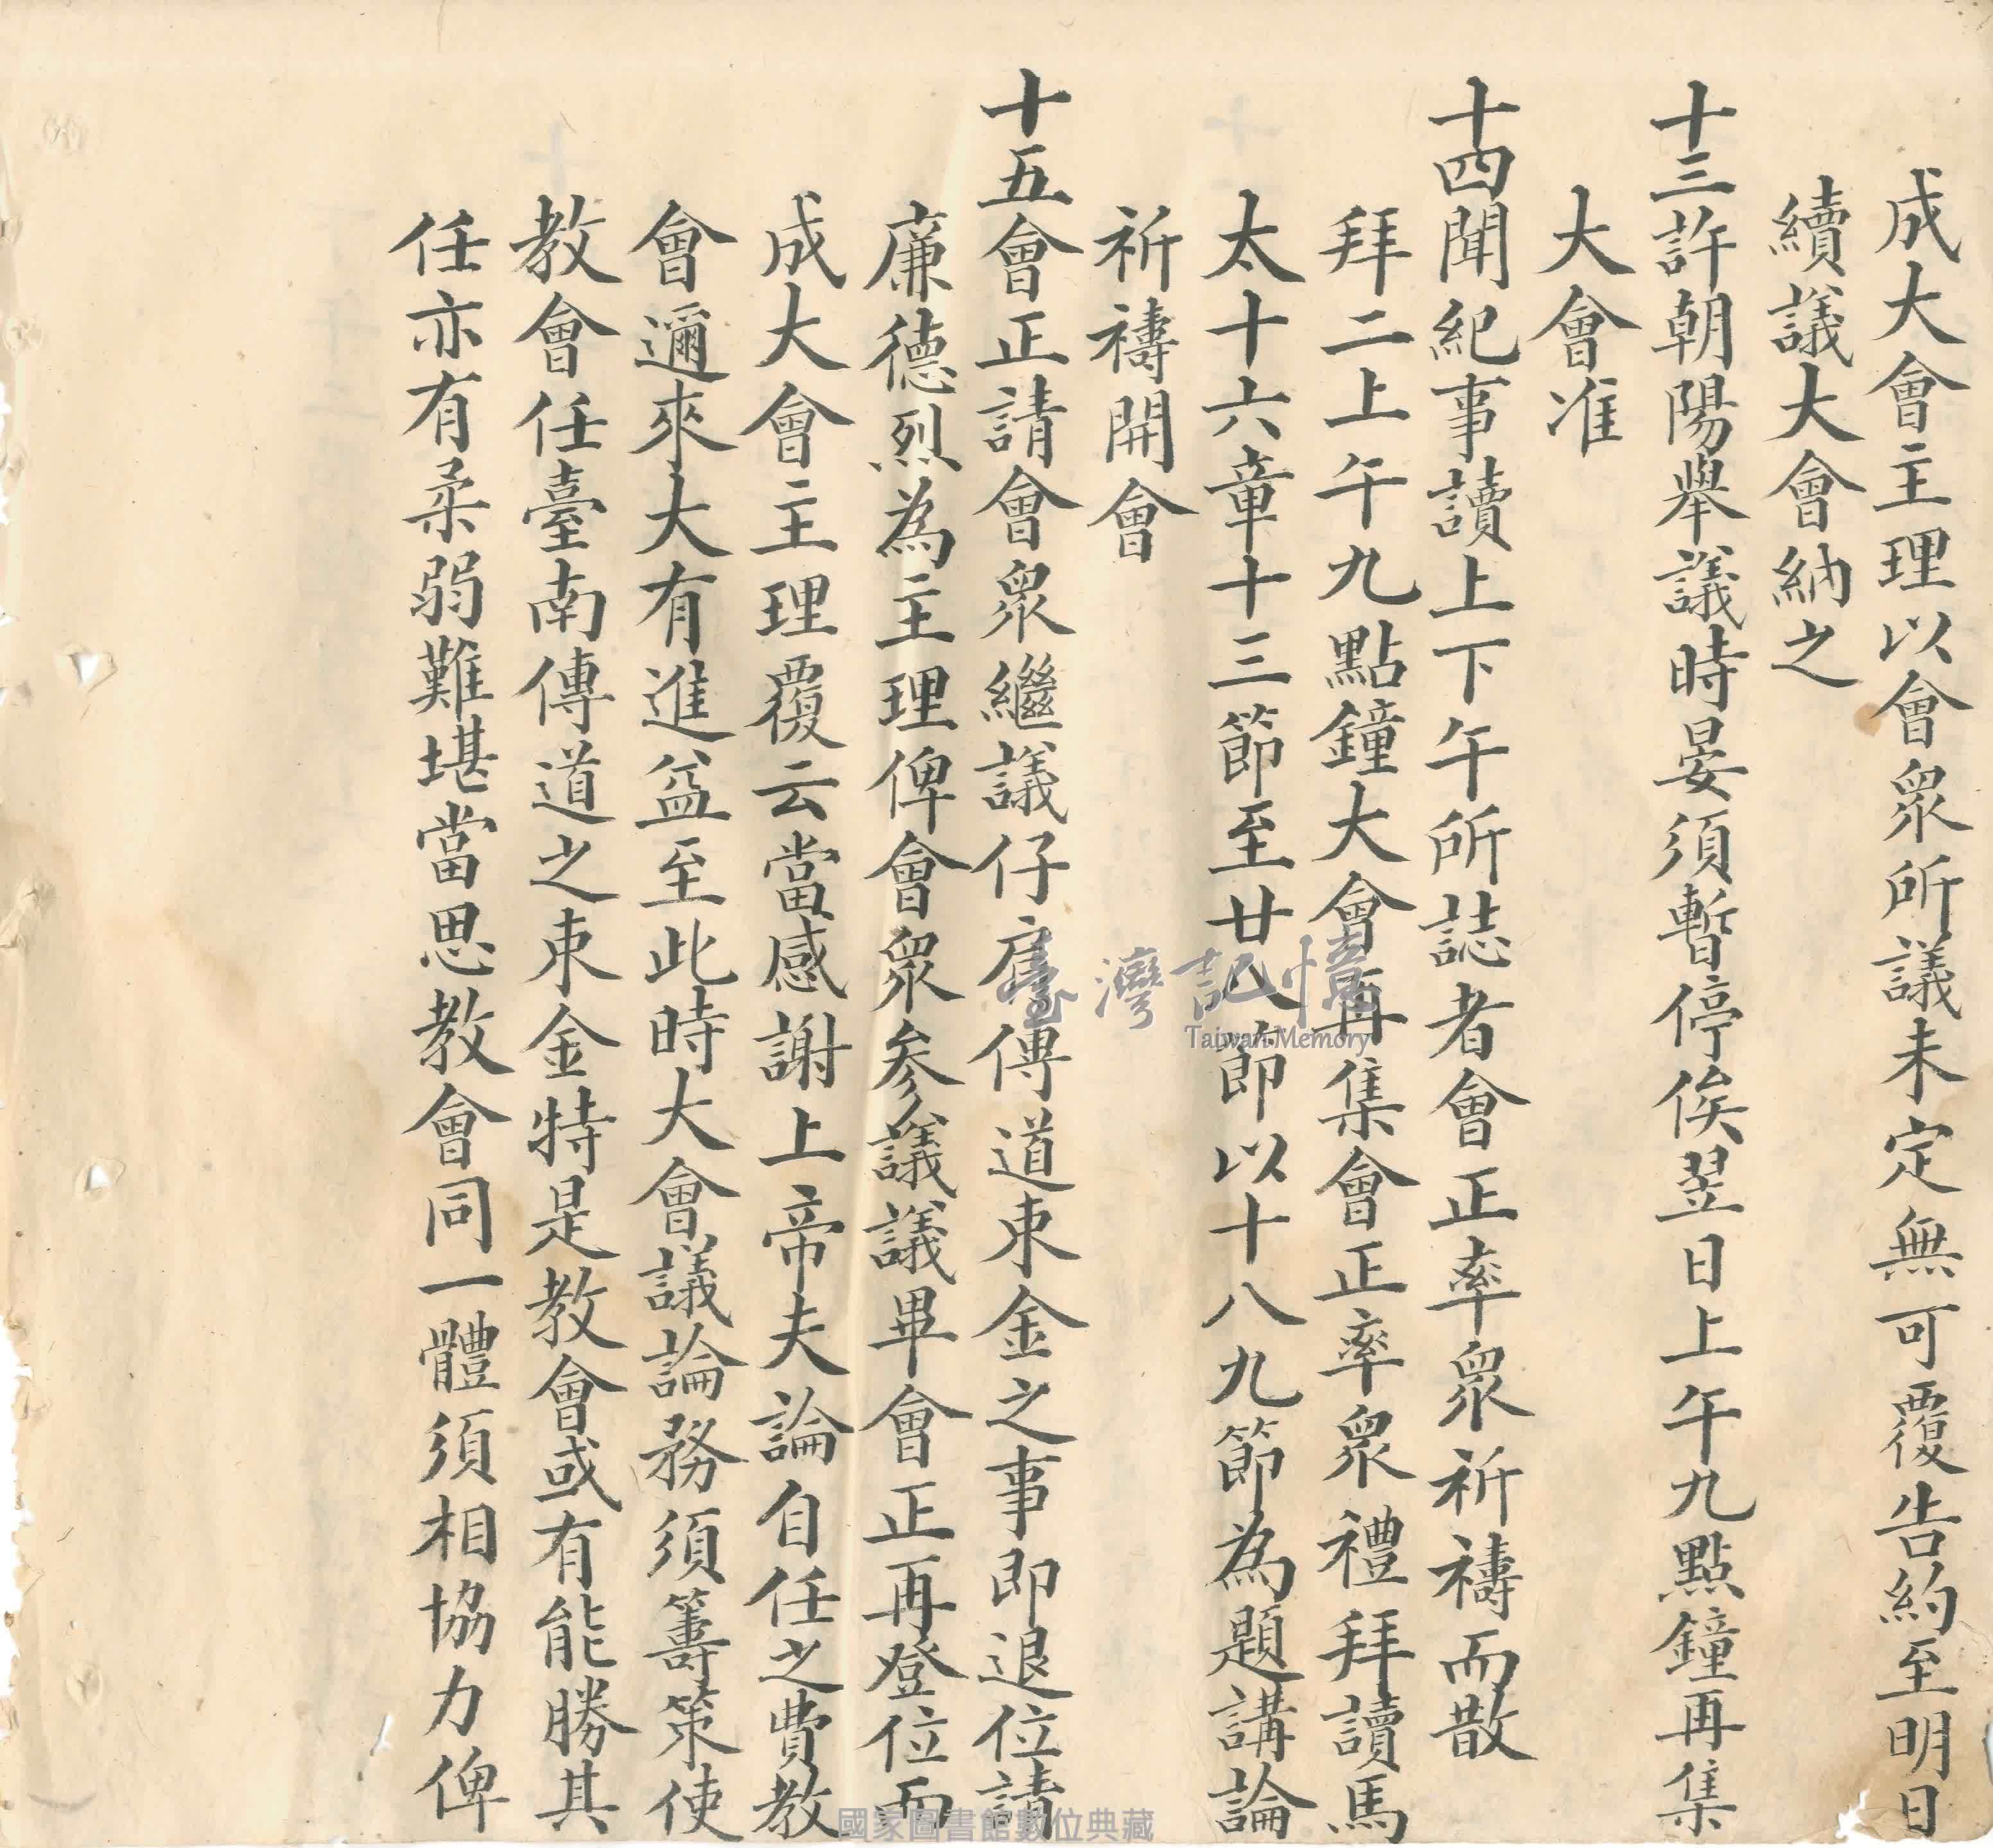 成大會主理以會眾所議未定無可覆告約至明日
續議大會納之
十三許朝陽舉議時晏須暫停俟翌日上午九點鐘再集
大會准
十四聞紀事讀上下午所誌者會正率眾祈禱而散
拜二上午九點鐘大會再集會正率眾禮拜讀馬
太十六章十三節至廿八節以十八九節為題講論
祈禱開會
十五會正請會眾繼議仔肩傳道束金之事即退位請
廉德烈為主理俾會眾參議議畢會正再登位而
成大會主理覆云當感謝上帝夫論自任之費教
會邇來大有進益至此時大會議論務須籌策使
教會任臺南傳道之束金特是教會或有能勝其
任亦有柔弱難堪當思教會同一體須相協力俾
臺灣記憶
Taiwan Memory
國家圖書館數位典藏